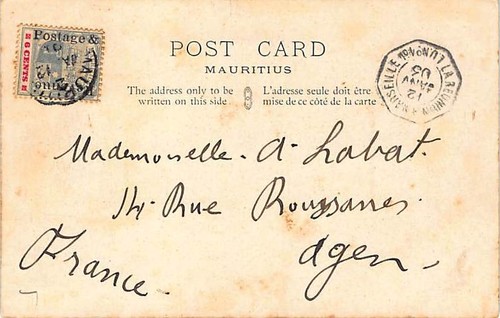 Postage &
6 CENTS
POST CARD
MAURITIUS
The address only to be
written on this side
L'adresse seule doit être
mise de ce côté de la carte
LA REUNION
MARSEILLE
12
JANV
03
Mademoiselle A. Labat.
14 Rue
Agen
France.